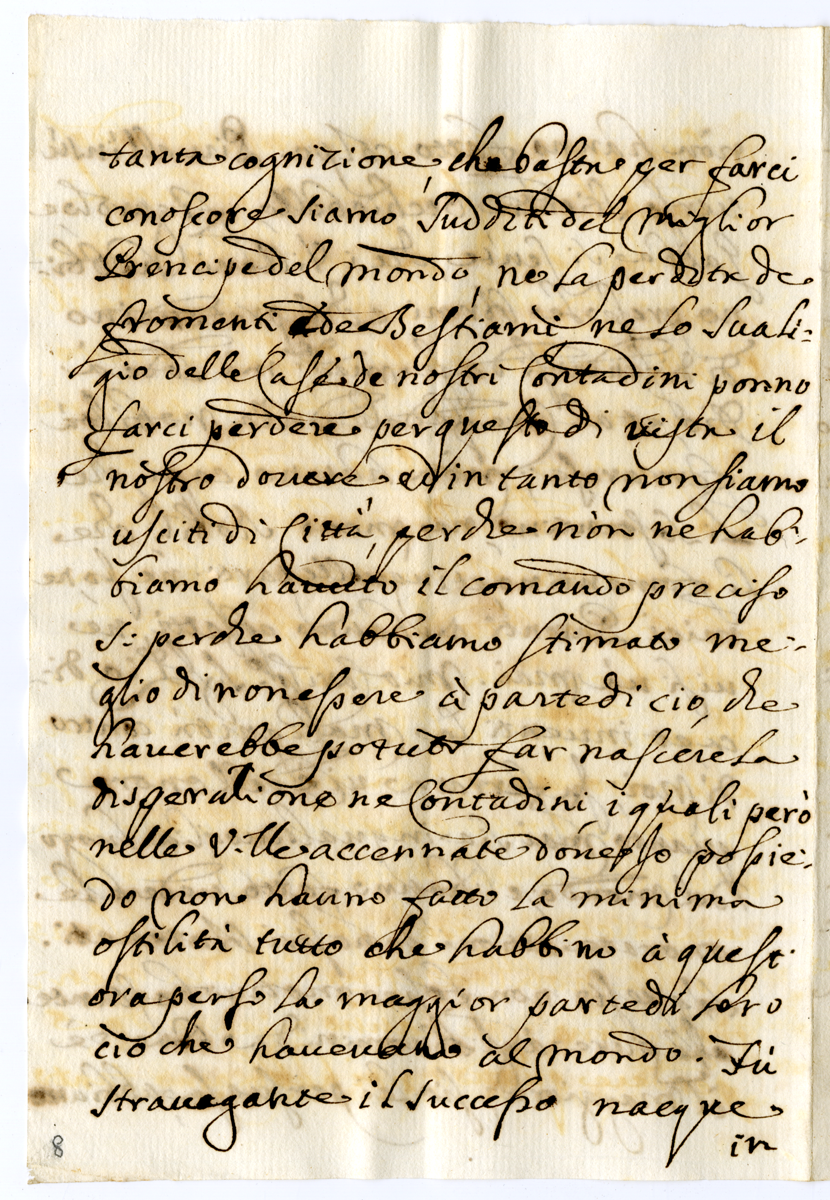 tanta cognizione, che basta per farci
conoscere siamo Sudditi del miglior
Prencipe del mondo, ne la perdita de
fromenti, e de Bestiami ne lo suali=
gio delle Case de nostri Contadini ponno
farci perdere per questo di vista il
nostro douere ed in tanto non siamo
usciti di Città, perche non ne hab=
biamo hauuto il comando preciso
si perche habbiamo stimato me=
glio di non essere à parte di cio, che
hauerebbe potuto far nascere la
disperatione ne Contadini, i quali però
nelle Ville accennate doue Io possie=
do non hanno fatto la minima
ostilità tutto che habbino à quest
ora perso la maggior parte di loro
cio che haueuano al mondo. Fù
strauagante il successo nacque
in
8